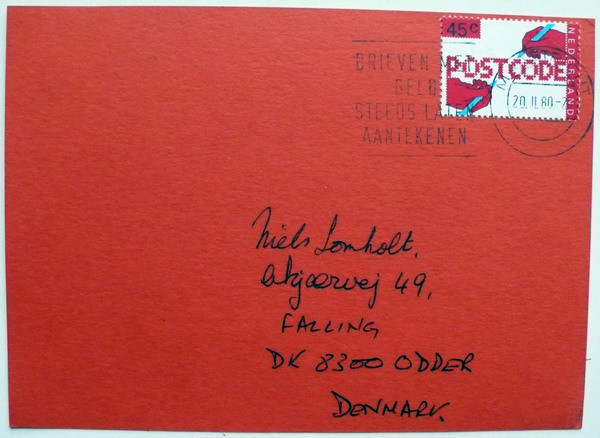 45c
NEDERLAND
POSTCODE
BRIEVEN MET
GELD
STEEDS LATEN
AANTEKENEN
20.II.80-2
Niels Lomholt.
Akjærvej 49,
FALLING
DK 8300 ODDER
DENMARK.